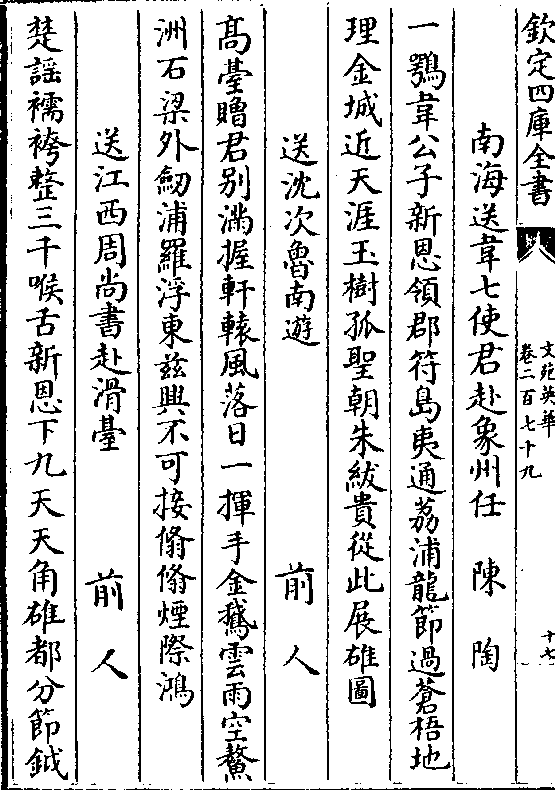 欽定四庫全書
文苑英華
卷二百七十九
十七
南海送韋七使君赴象州任 陳陶
一鶚韋公子新恩領郡符島夷通荔浦龍節過蒼梧地
理金城近天涯玉樹孤聖朝朱紱貴從此展雄圖
送沈次魯南遊 前人
髙臺贈君别滿握軒轅風落日一揮手金鵞雲雨空鰲
洲石梁外劒浦羅浮東兹興不可接翛翛煙際鴻
送江西周尚書赴滑臺 前人
楚謡襦袴整三千喉舌新恩下九天天角雄都分節鉞